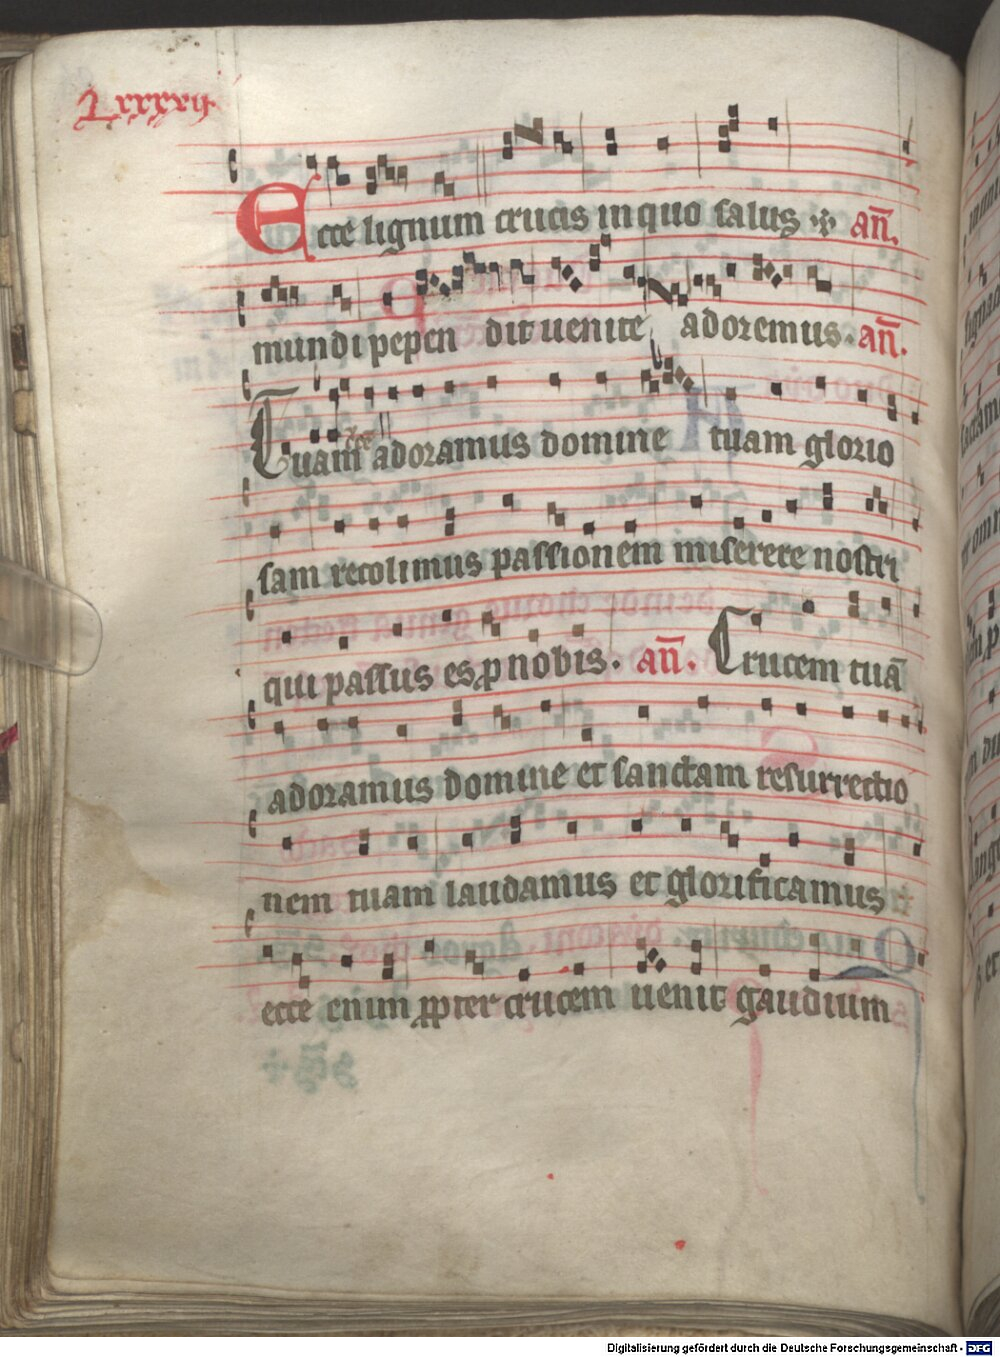 Lxxxxvij
Ecce lignum crucis in quo salus an̄.
mundi pepen dit uenite adoremus. an̄.
Tuam ✝cē adoramus domine tuam glorio
sam recolimus passionem miserere nostri
qui passus es ꝑ nobis. an̄. Crucem tuā
adoramus domine et sanctam resurrectio
nem tuam laudamus et glorificamus
ecce enim ꝓpter crucem uenit gaudium
Digitalisierung gefördert durch die Deutsche Forschungsgemeinschaft - DFG